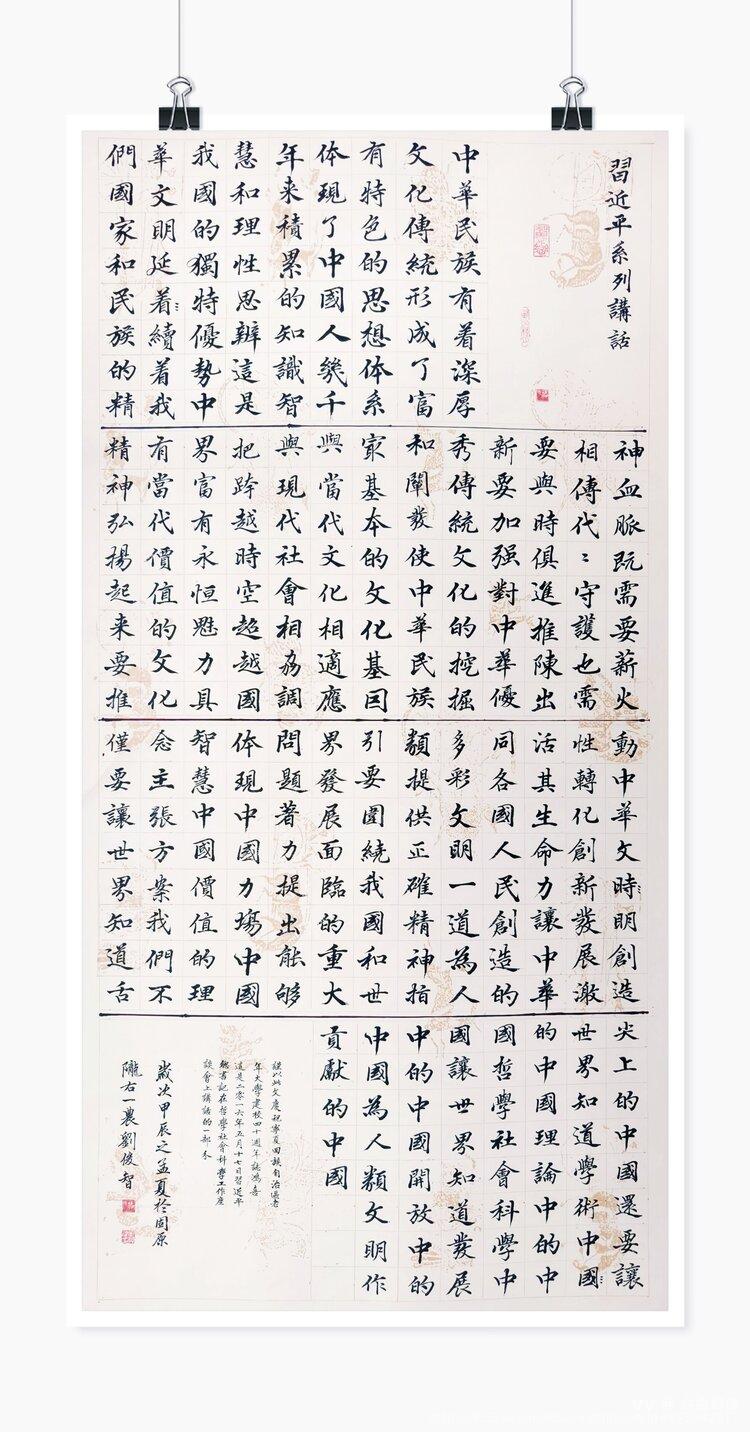 習近平系列講話
中華民族有着深厚
文化傳統形成了富
有特色的思想体系
体現了中國人幾千
年来積累的知識智
慧和理性思辨這是
我國的獨特優勢中
華文明延着續着我
們國家和民族的精
神血脈既需要薪火
相傳代〻守護也需
要與時俱進推陳出
新要加强對中華優
秀傳統文化的挖掘
和闡發使中華民族
冣基本的文化基因
與當代文化相適應
與現代社會相劦調
把跨越時空超越國
界富有永恒魅力具
有當代價值的文化
精神弘揚起来要推
動中華文時明創造
性轉化創新發展激
活其生命力讓中華
同各國人民創造的
多彩文明一道為人
類提供正確精神指
引要圍繞我國和世
界發展面臨的重大
問題著力提出能够
体現中國力場中國
智慧中國價值的理
念主張方案我們不
僅要讓世界知道舌
尖上的中國還要讓
世界知道學術中國
的中國理論中的中
國哲學社會科學中
國讓世界知道發展
中的中國開放中的
中國為人類文明作
貢獻的中國
謹以此文慶祝寧夏回族自治區老
年大學建校四十週年誌鴻喜
這是二零一六年五月十七日習近平
總書記在哲學社會科學工作座
談會上講話的一部分
歲次甲辰之孟夏於固原
隴右一農劉俊智